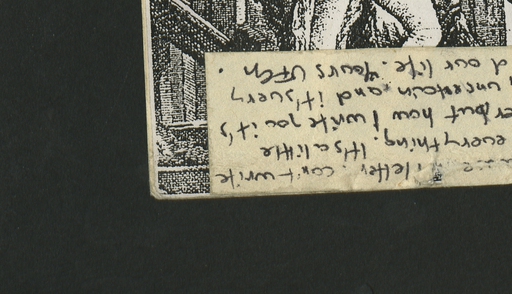 letter. can't write
everything. It's a little
but how I write you it's
uncertain and it's very
our life. Yours